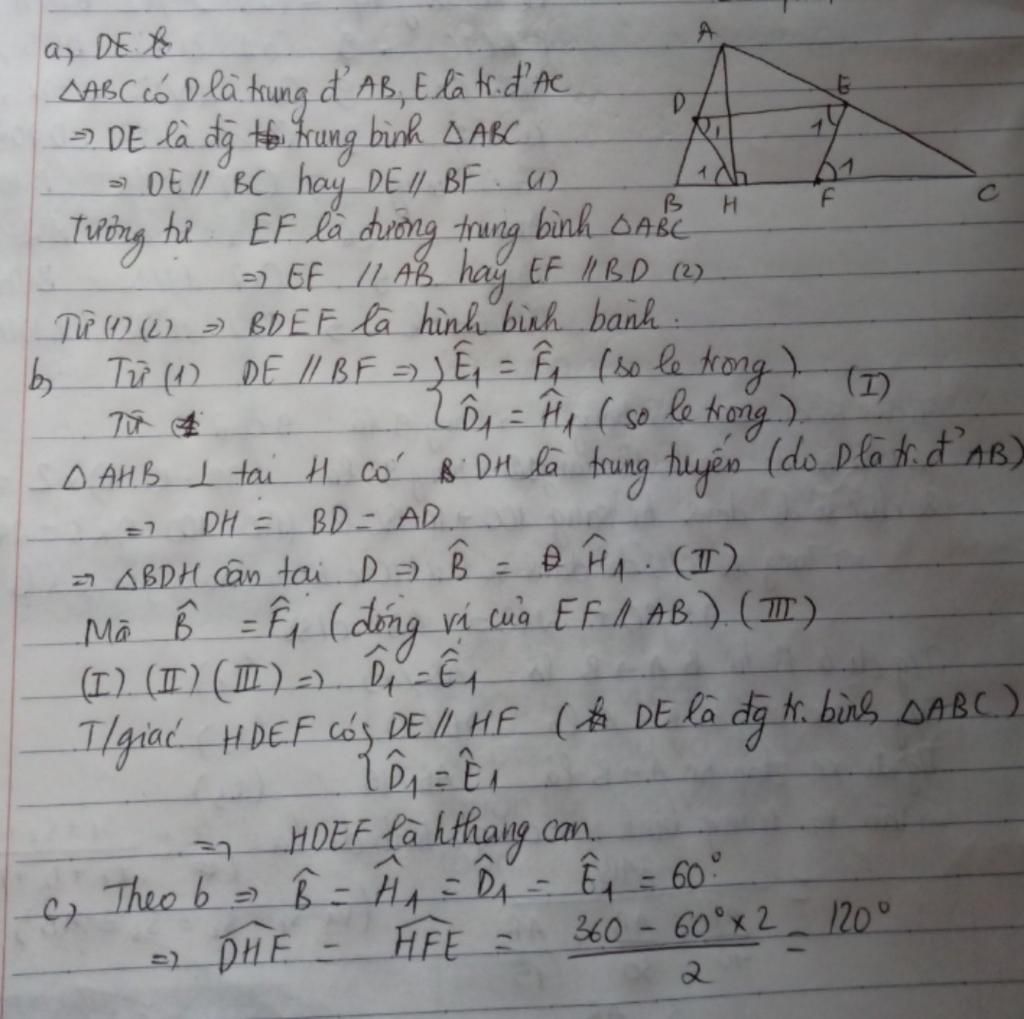 a, DE
△ABC có D là trung đ' AB, E là tr. đ' AC
⇒ DE là đg trung bình △ABC
⇒ DE // BC hay DE // BF. (1)
Tương tự EF là đường trung bình △ABC
⇒ EF // AB hay EF // BD (2)
Từ (1) (2) ⇒ BDEF là hình bình hành.
b, Từ (1) DE // BF ⇒ { Ê1 = F̂1 (so le trong)
Từ { D̂1 = Ĥ1 (so le trong) (I)
△AHB ⊥ tại H có DH là trung tuyến (do D là tr. đ' AB)
⇒ DH = BD = AD
⇒ △BDH cân tại D ⇒ B̂ = Ĥ1. (II)
Mà B̂ = F̂1 (đồng vị của EF // AB) (III)
(I) (II) (III) ⇒ D̂1 = Ê1
T/giác HDEF có { DE // HF ( DE là đg tr. bình △ABC)
{ D̂1 = Ê1
⇒ HDEF là hthang cân.
c, Theo b ⇒ B̂ = Ĥ1 = D̂1 = Ê1 = 60°
⇒ DHF = HFE = (360 - 60° × 2)/2 = 120°
A
D
E
1
1
1
1
B
H
F
C